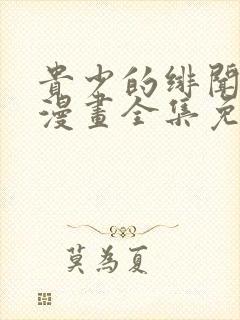 貴少的緋聞
漫畫全集免
莫為夏